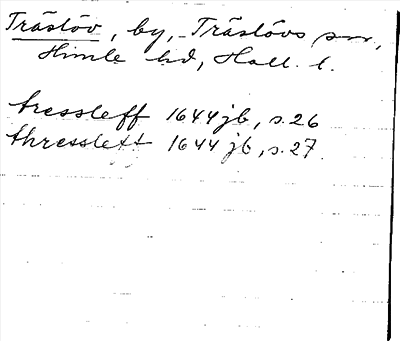 Träslöv, by, Träslövs sn,
Himle hd, Hall. l.
tressleff 1644 jb, s. 26
thresslett 1644 jb, s. 27.